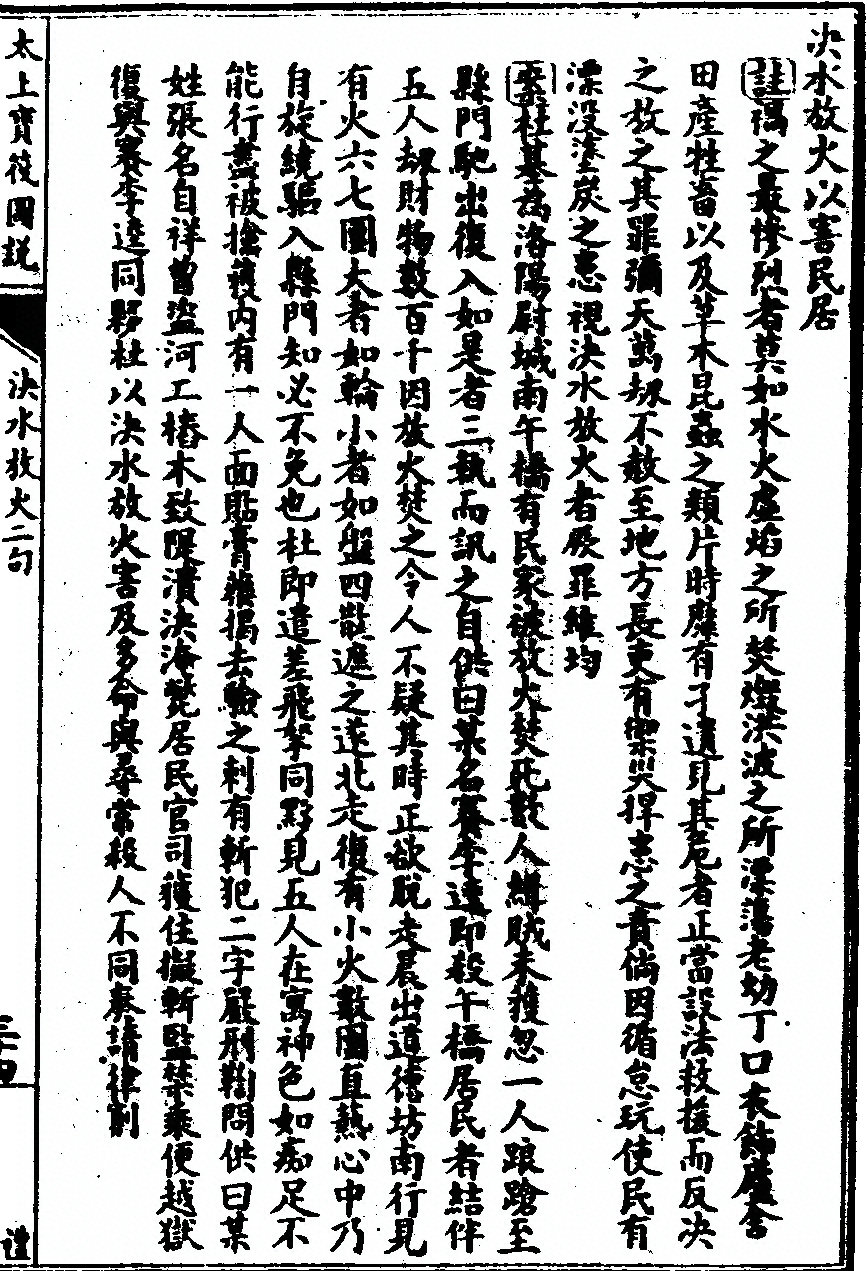 決水放火以害民居
註禍之最慘烈者莫如水火虐焰之所焚燬洪波之所漂蕩老幼丁口衣飾廬舍
田產牲畜以及草木昆蟲之類片時靡有孑遺見其危者正當設法救援而反决
之放之其罪彌天萬劫不赦至地方長吏有禦災捍患之責倘因循怠玩使民有
漂没塗炭之患視決水放火者厥罪維均
案杜某為洛陽尉城南午橋有民家被放火焚死數人緝賊未獲忽一人踉蹌至
縣門馳出復入如是者三執而訊之自供曰某名賽李逵即殺午橋居民者結伴
五人劫財物數百千因放火焚之令人不疑其時正欲脫走晨出道德坊南行見
有火六七團大者如輪小者如盤四散遮之遂北走復有小火數團直爇心中乃
自旋繞驅入縣門知必不免也杜即遣差飛拏同夥見五人在寓神色如痴足不
能行盡被擒獲内有一人面貼膏藥揭去驗之刺有斬犯二字嚴刑鞫問供曰某
姓張名自祥曾盜河工樁木致隄潰決淹斃居民官司獲住擬斬監禁乘便越獄
復與賽李逵同夥杜以決水放火害及多命與尋常殺人不同奏請律劊
太上寶筏圖説
決水放火二句
三十四
禮